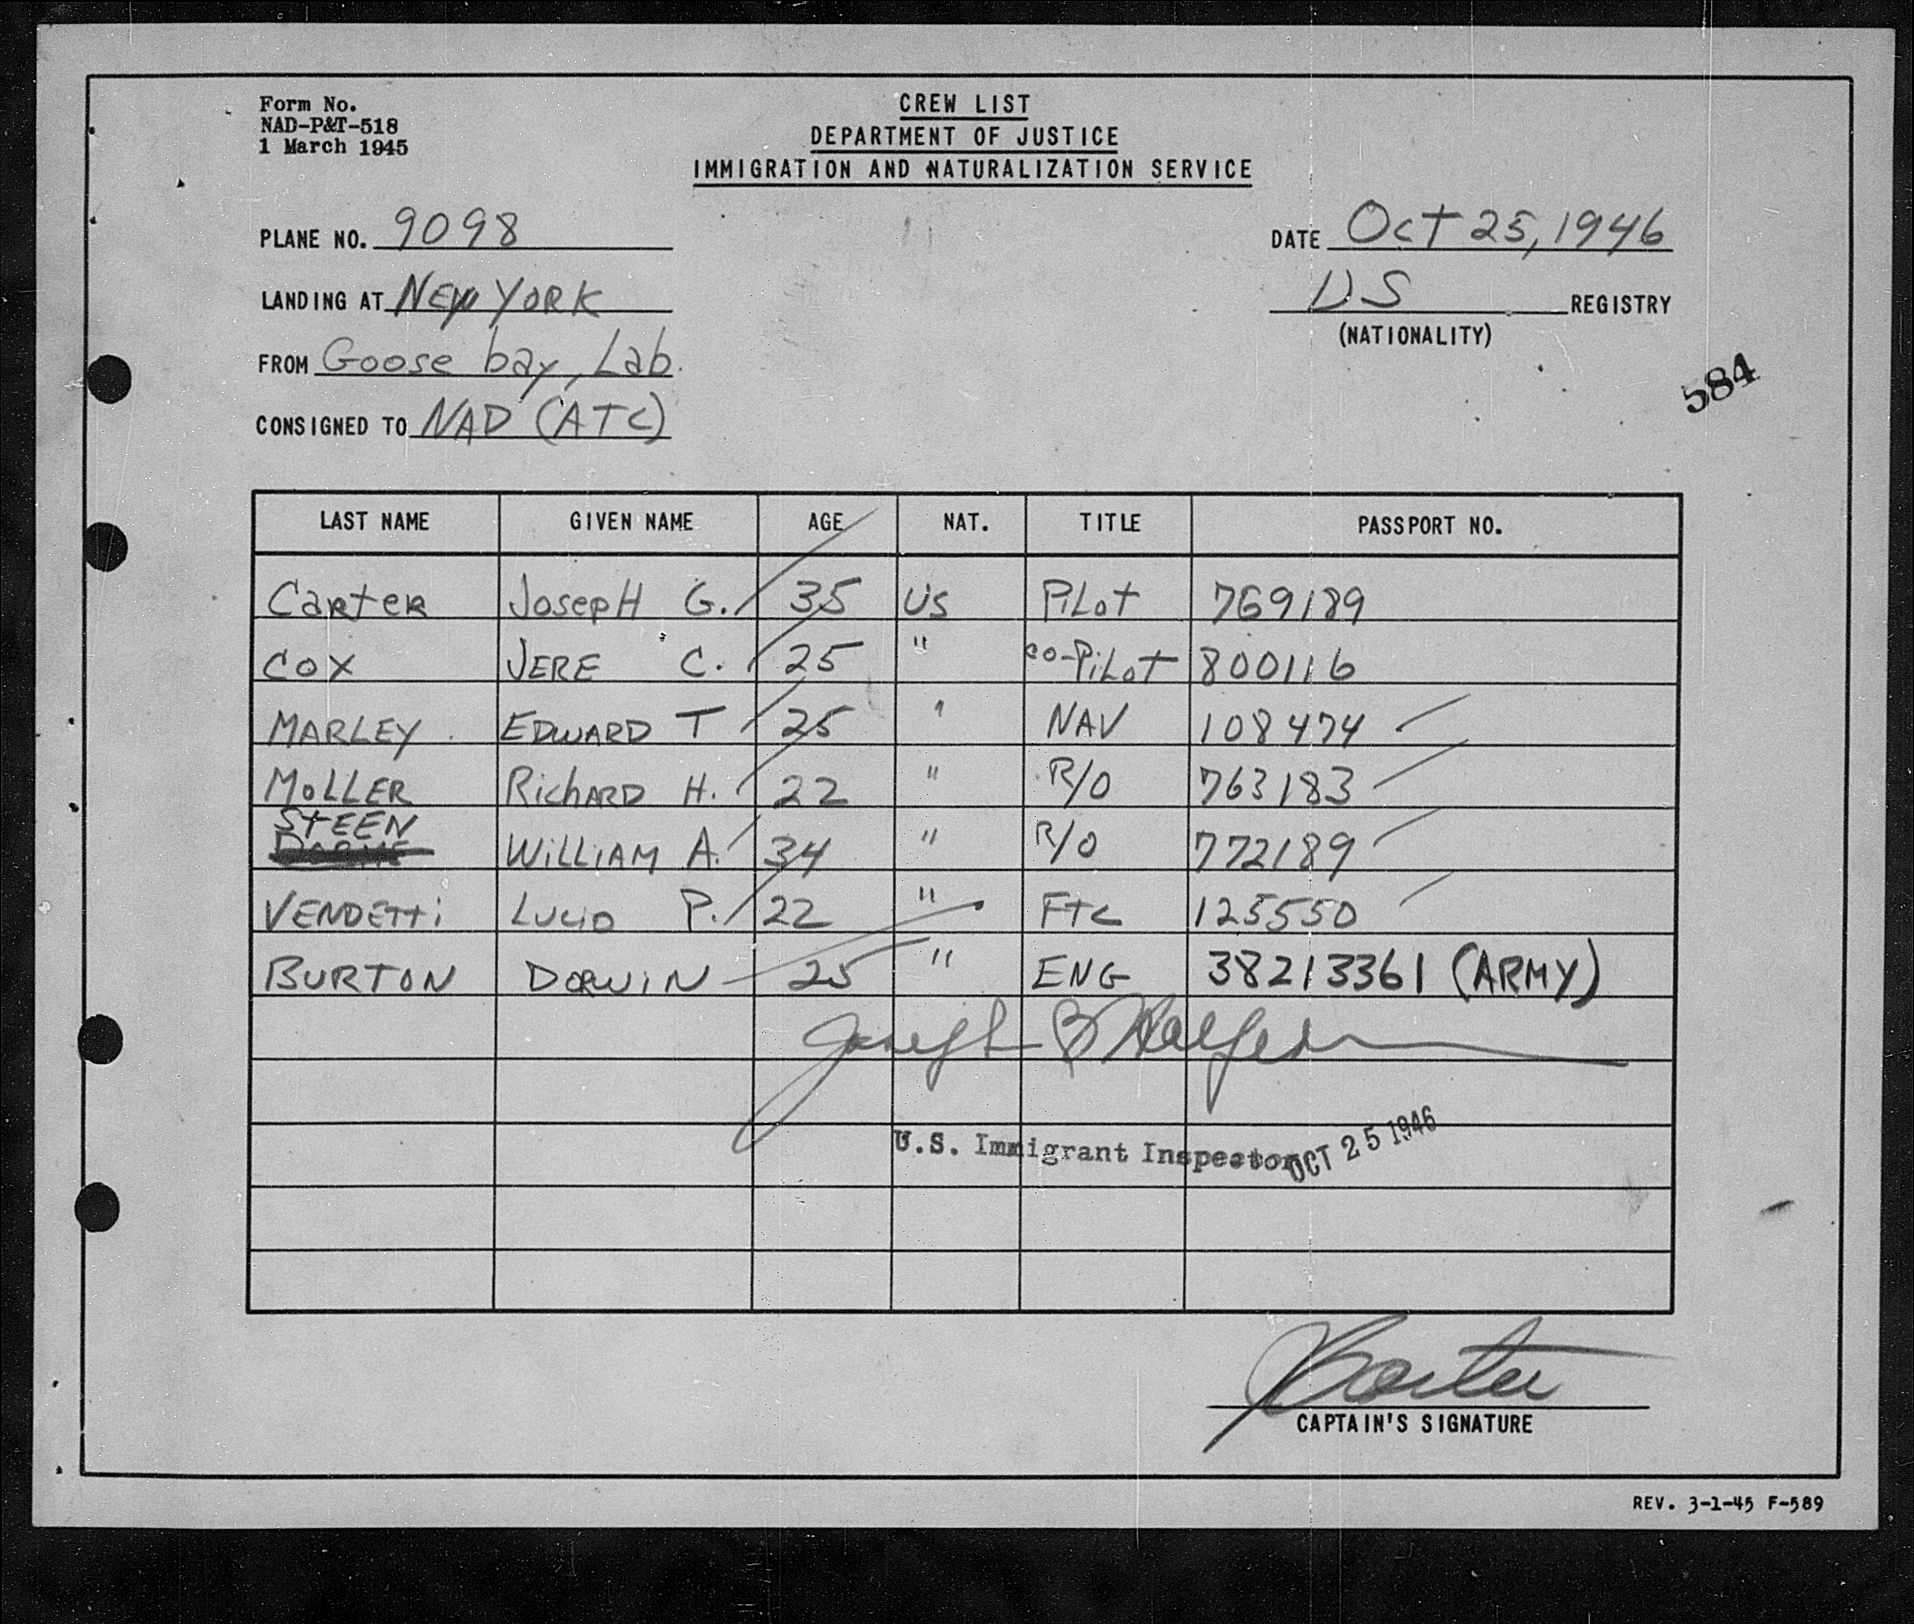 Form No.
NAD-P&T-518
1 March 1945
CREW LIST
DEPARTMENT OF JUSTICE
IMMIGRATION AND NATURALIZATION SERVICE
PLANE NO. 9098
DATE Oct 25, 1946
LANDING AT NEW YORK
US REGISTRY
(NATIONALITY)
FROM Goose bay, Lab.
584
CONSIGNED TO NAD (ATC)
LAST NAME GIVEN NAME AGE NAT. TITLE PASSPORT NO.
Carter JosepH G. 35 US PiLot 769189
COX JERE C. 25 " co-PiLoT 800116
MARLEY EDWARD T 25 " NAV 108474
MoLLER RichARD H. 22 " R/O 763183
STEEN
WiLLiAM A. 34 " R/O 772189
VENDETTi LUCIO P. 22 " FTC 125550
BURTON DORWiN 25 " ENG 38213361 (ARMY)
Joseph B
U.S. Immigrant Inspector OCT 25 1946
CAPTAIN'S SIGNATURE
REV. 3-1-45 F-589